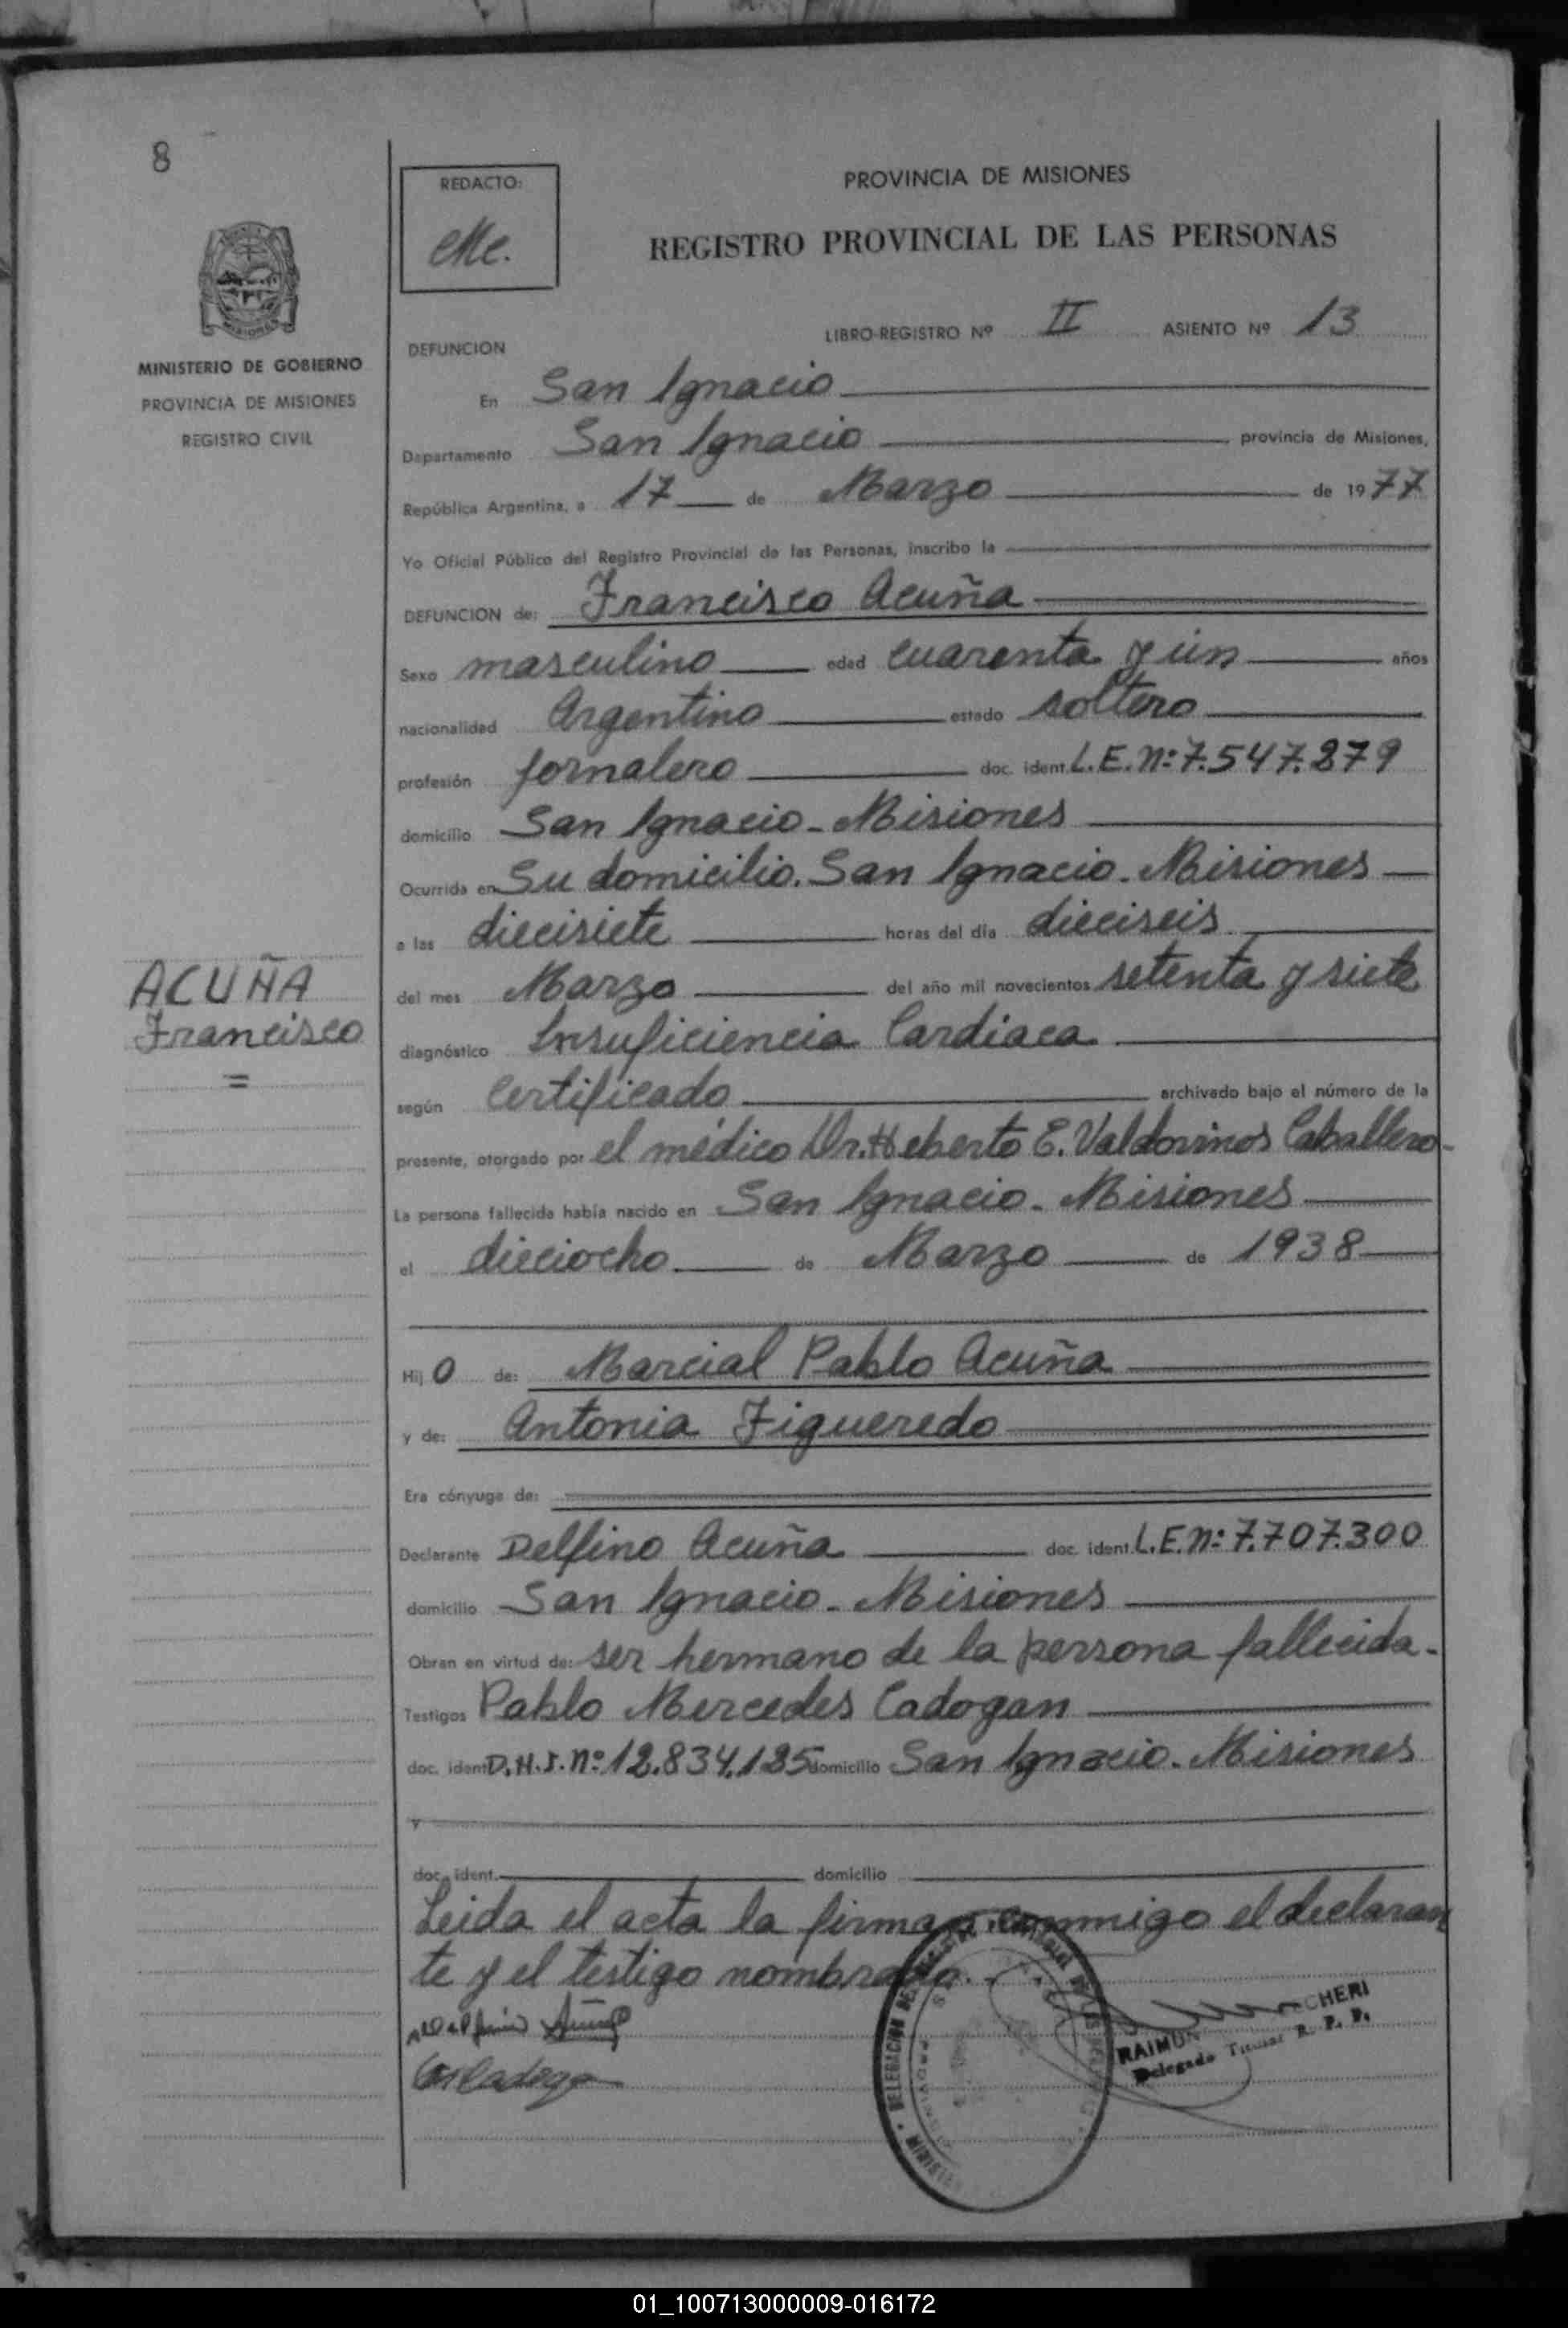 8
REDACTO:
PROVINCIA DE MISIONES
REGISTRO PROVINCIAL DE LAS PERSONAS
MISIONES
MINISTERIO DE GOBIERNO
PROVINCIA DE MISIONES
REGISTRO CIVIL
LIBRO-REGISTRO Nº II ASIENTO Nº 13
DEFUNCION
En San Ignacio
Departamento San Ignacio provincia de Misiones,
República Argentina, a 17 de Marzo de 1977
Yo Oficial Público del Registro Provincial de las Personas, inscribo la
DEFUNCION de: Francisco Acuña
Sexo masculino edad cuarenta y un años
nacionalidad Argentino estado soltero
profesión Jornalero doc. ident. L.E.Nº: 7.547.879
domicilio San Ignacio - Misiones
Ocurrida en Su domicilio. San Ignacio - Misiones
a las diecisiete horas del día dieciseis
ACUÑA
Francisco
=
del mes Marzo del año mil novecientos setenta y siete
diagnóstico Insuficiencia Cardiaca
según Certificado archivado bajo el número de la
presente, otorgado por el médico Dr. Heberto E. Valdovinos Caballero-
La persona fallecida había nacido en San Ignacio - Misiones
el dieciocho de Marzo de 1938
Hijo de: Marcial Pablo Acuña
y de: Antonia Figueredo
Era cónyuge de:
Declarante Delfino Acuña doc. ident. L.E.Nº: 7.707.300
domicilio San Ignacio - Misiones
Obran en virtud de: ser hermano de la persona fallecida.
Testigos Pablo Mercedes Cadogan
doc. ident D.N.I. Nº: 12.834.125 domicilio San Ignacio - Misiones
y
doc. ident. domicilio
Leida el acta la firman conmigo el declaran
te y el testigo nombrado.
CHERI
RAIMUN
Delegado Titular R. P. P.
01_100713000009-016172